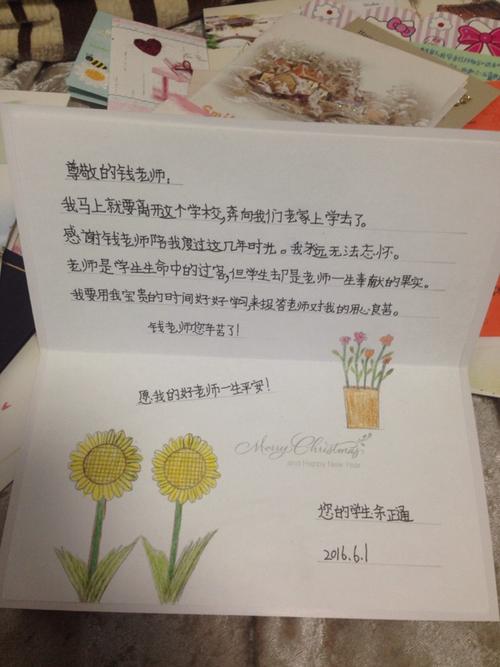 尊敬的钱老师:
我马上就要离开这个学校,奔向我们老家上学去了。
感谢钱老师陪我度过这几年时光。我永远无法忘怀。
老师是学生生命中的过客,但学生却是老师一生奉献的果实。
我要用我宝贵的时间好好学习来报答老师对我的用心良苦。
钱老师您辛苦了!
愿我的好老师一生平安!
Merry Christmas
and Happy New Year
您的学生余正通
2016.6.1